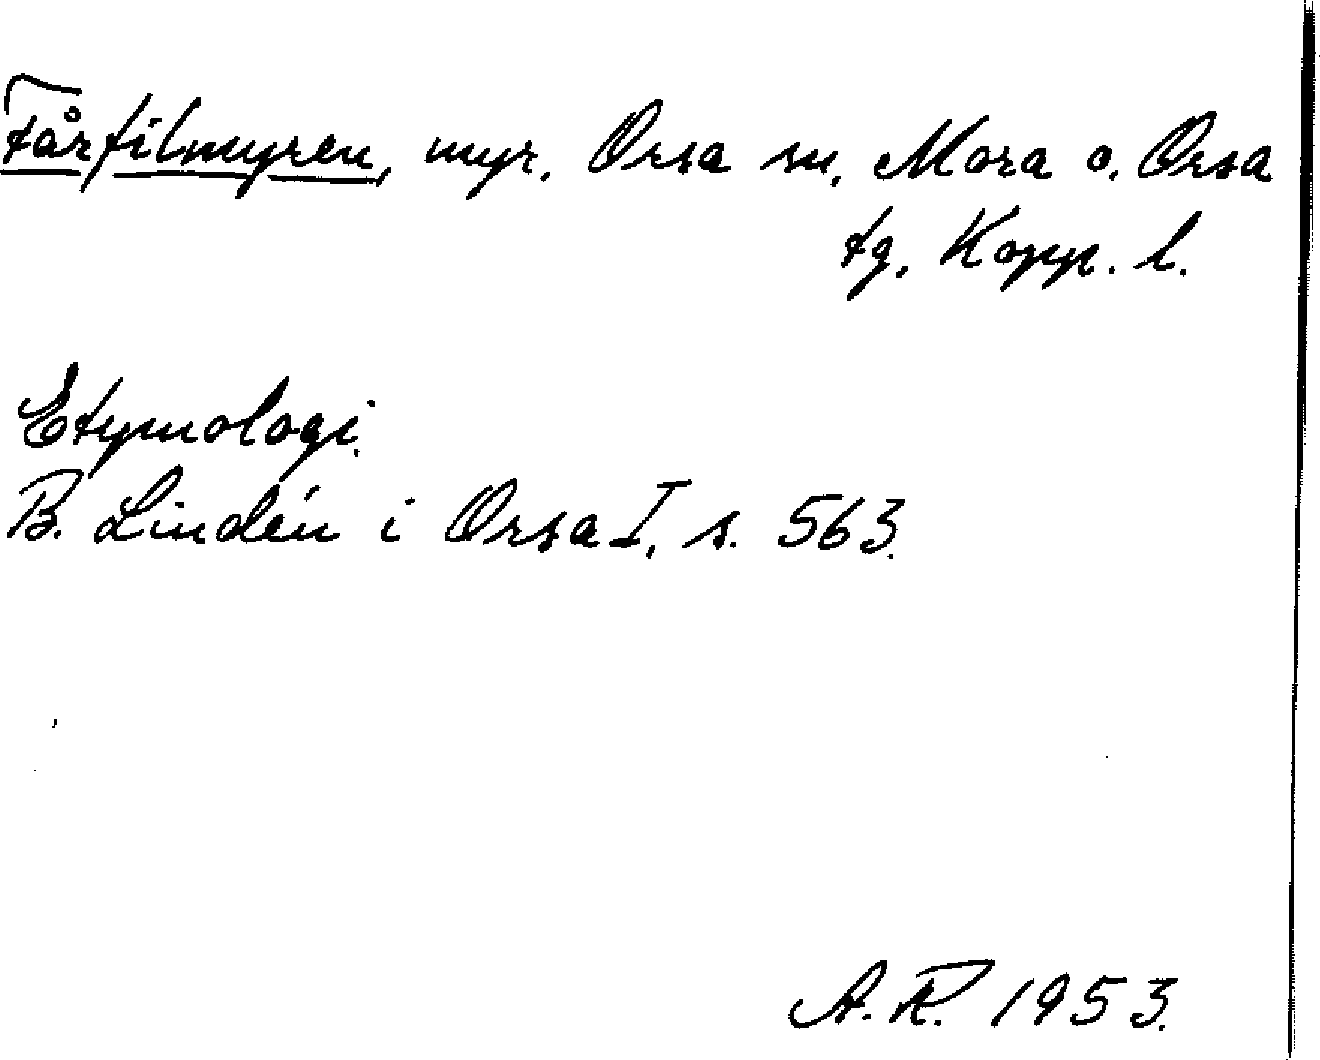 Fårfilmyren, myr. Orsa sn, Mora o. Orsa
tg, Kopp. l.
Etymologi.
B. Lindén i Orsa I, s. 563.
A.R. 1953.